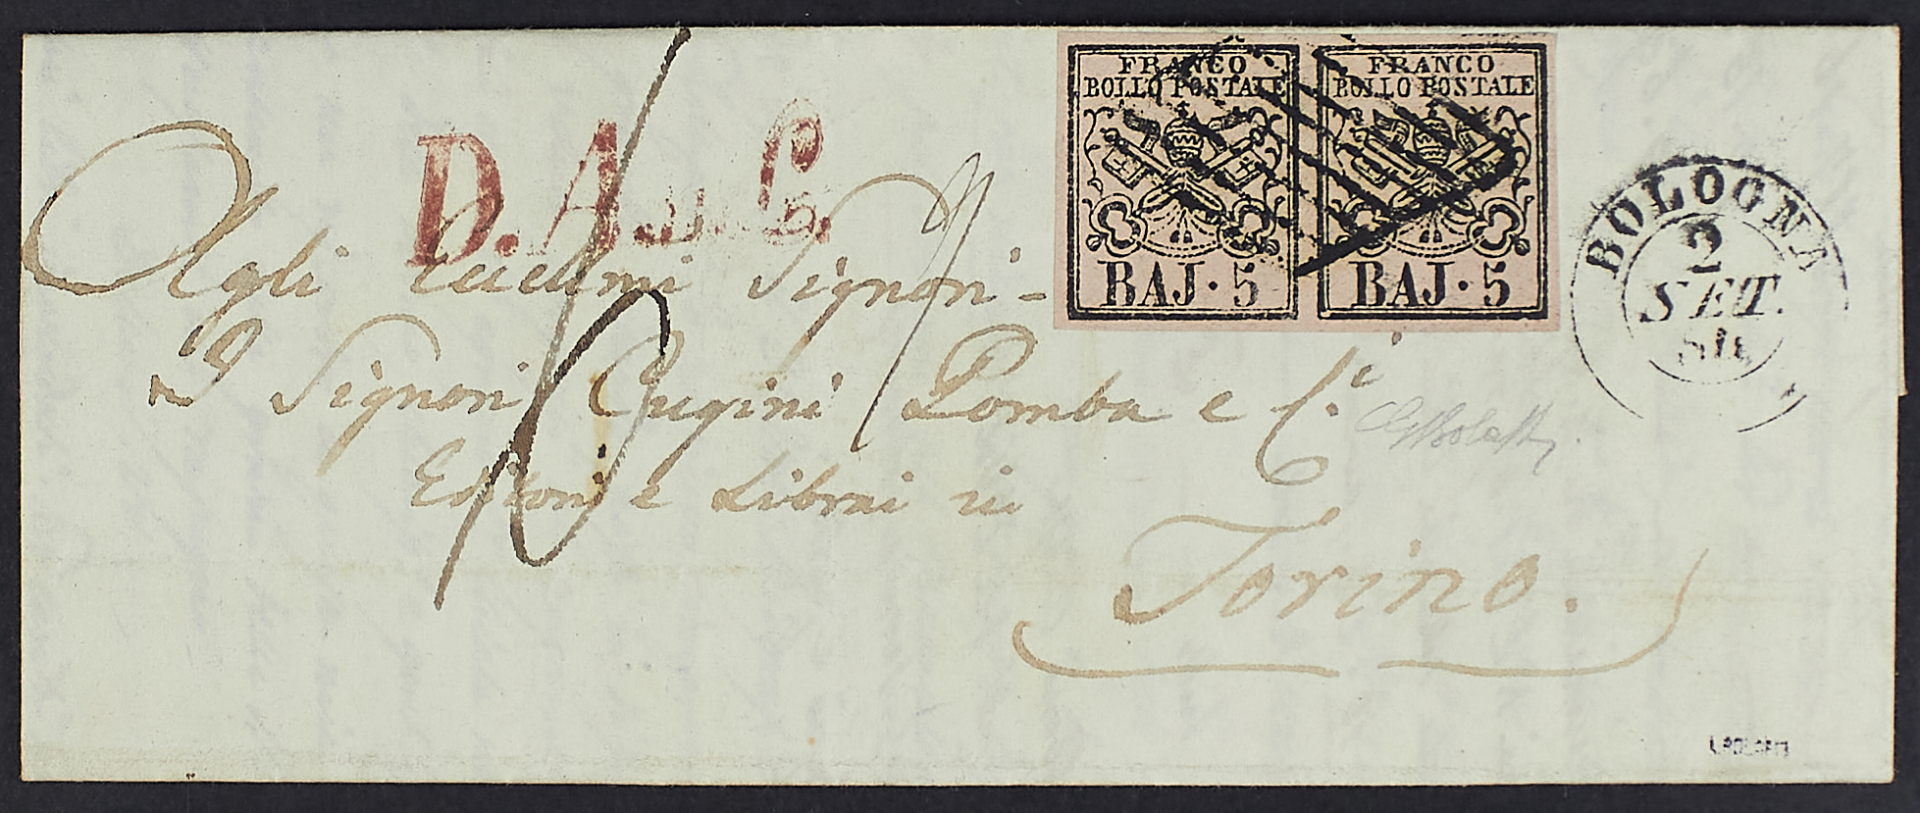 FRANCO
BOLLO POSTALE
BAJ · 5
FRANCO
BOLLO POSTALE
BAJ · 5
BOLOGNA
2
SET.
D. A.
Agli Signori -
I Signori Cugini Pomba e C.i
Editori e Librai in
Torino.